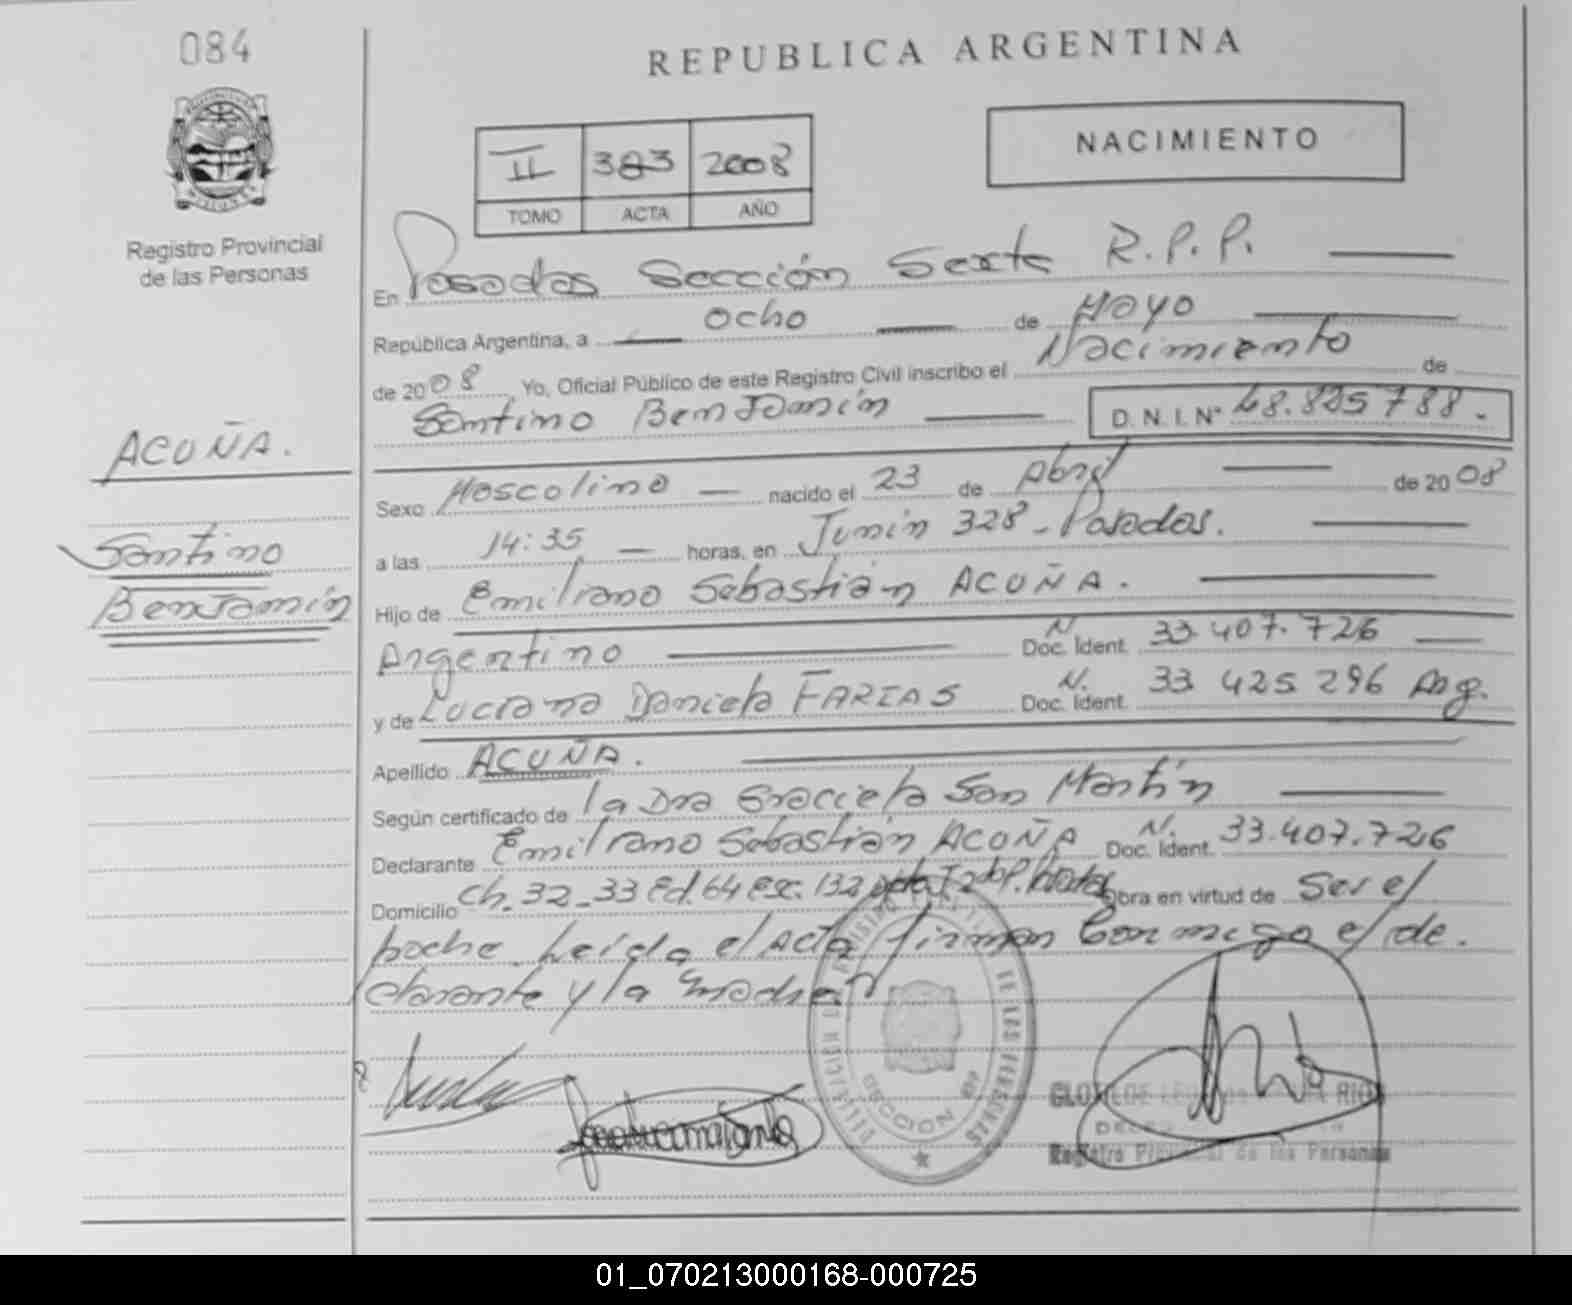 084
REPUBLICA ARGENTINA
NACIMIENTO
II 383 2008
TOMO ACTA AÑO
Registro Provincial
de las Personas
En Posadas Sección Sexta R.P.P.
República Argentina, a ocho de Mayo
de 2008 Yo, Oficial Público de este Registro Civil inscribo el Nacimiento de
Santino Benjamín D.N.I.Nº 48.825788.
ACUÑA.
Santino
Benjamín
Sexo Mascolino nacido el 23 de Abril de 2008
a las 14:35 horas, en Junin 328 - Posadas.
Hijo de Emiliano Sebastián ACUÑA.
Argentino Doc. Ident. N 33.407.726
y de Luciana Daniela FARIAS Doc. Ident. N. 33 425 296 Arg.
Apellido ACUÑA.
Según certificado de la Dra Graciela San Martín
Declarante Emiliano Sebastián ACUÑA Doc. Ident. N. 33.407.726
Domicilio Ch. 32-33 Ed. 64 esc. 132 Obra en virtud de Ser el
padre. Leída el Acta firman Conmigo el de.
clarante y la madre
SECCION 6ª
Registro Provincial de las Personas
01_070213000168-000725